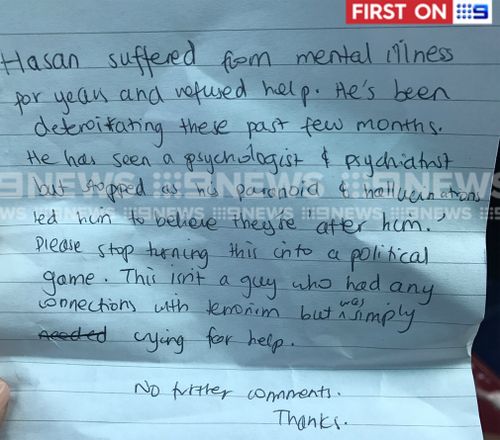 FIRST ON 9
Hasan suffered from mental illness
for years and refused help. He's been
deteroitating these past few months.
He has seen a psychologist & psychiatrist
but stopped as his paranoid & hallucinations
led him to believe theyre after him."
Please stop turning this into a political
game. This isnt a guy who had any
connections with terrorism but was simply
needed crying for help.
No further comments.
Thanks.
9NEWS 9NEWS 9NEWS 9NEWS
9NEWS 9NEWS 9NEWS 9NEWS